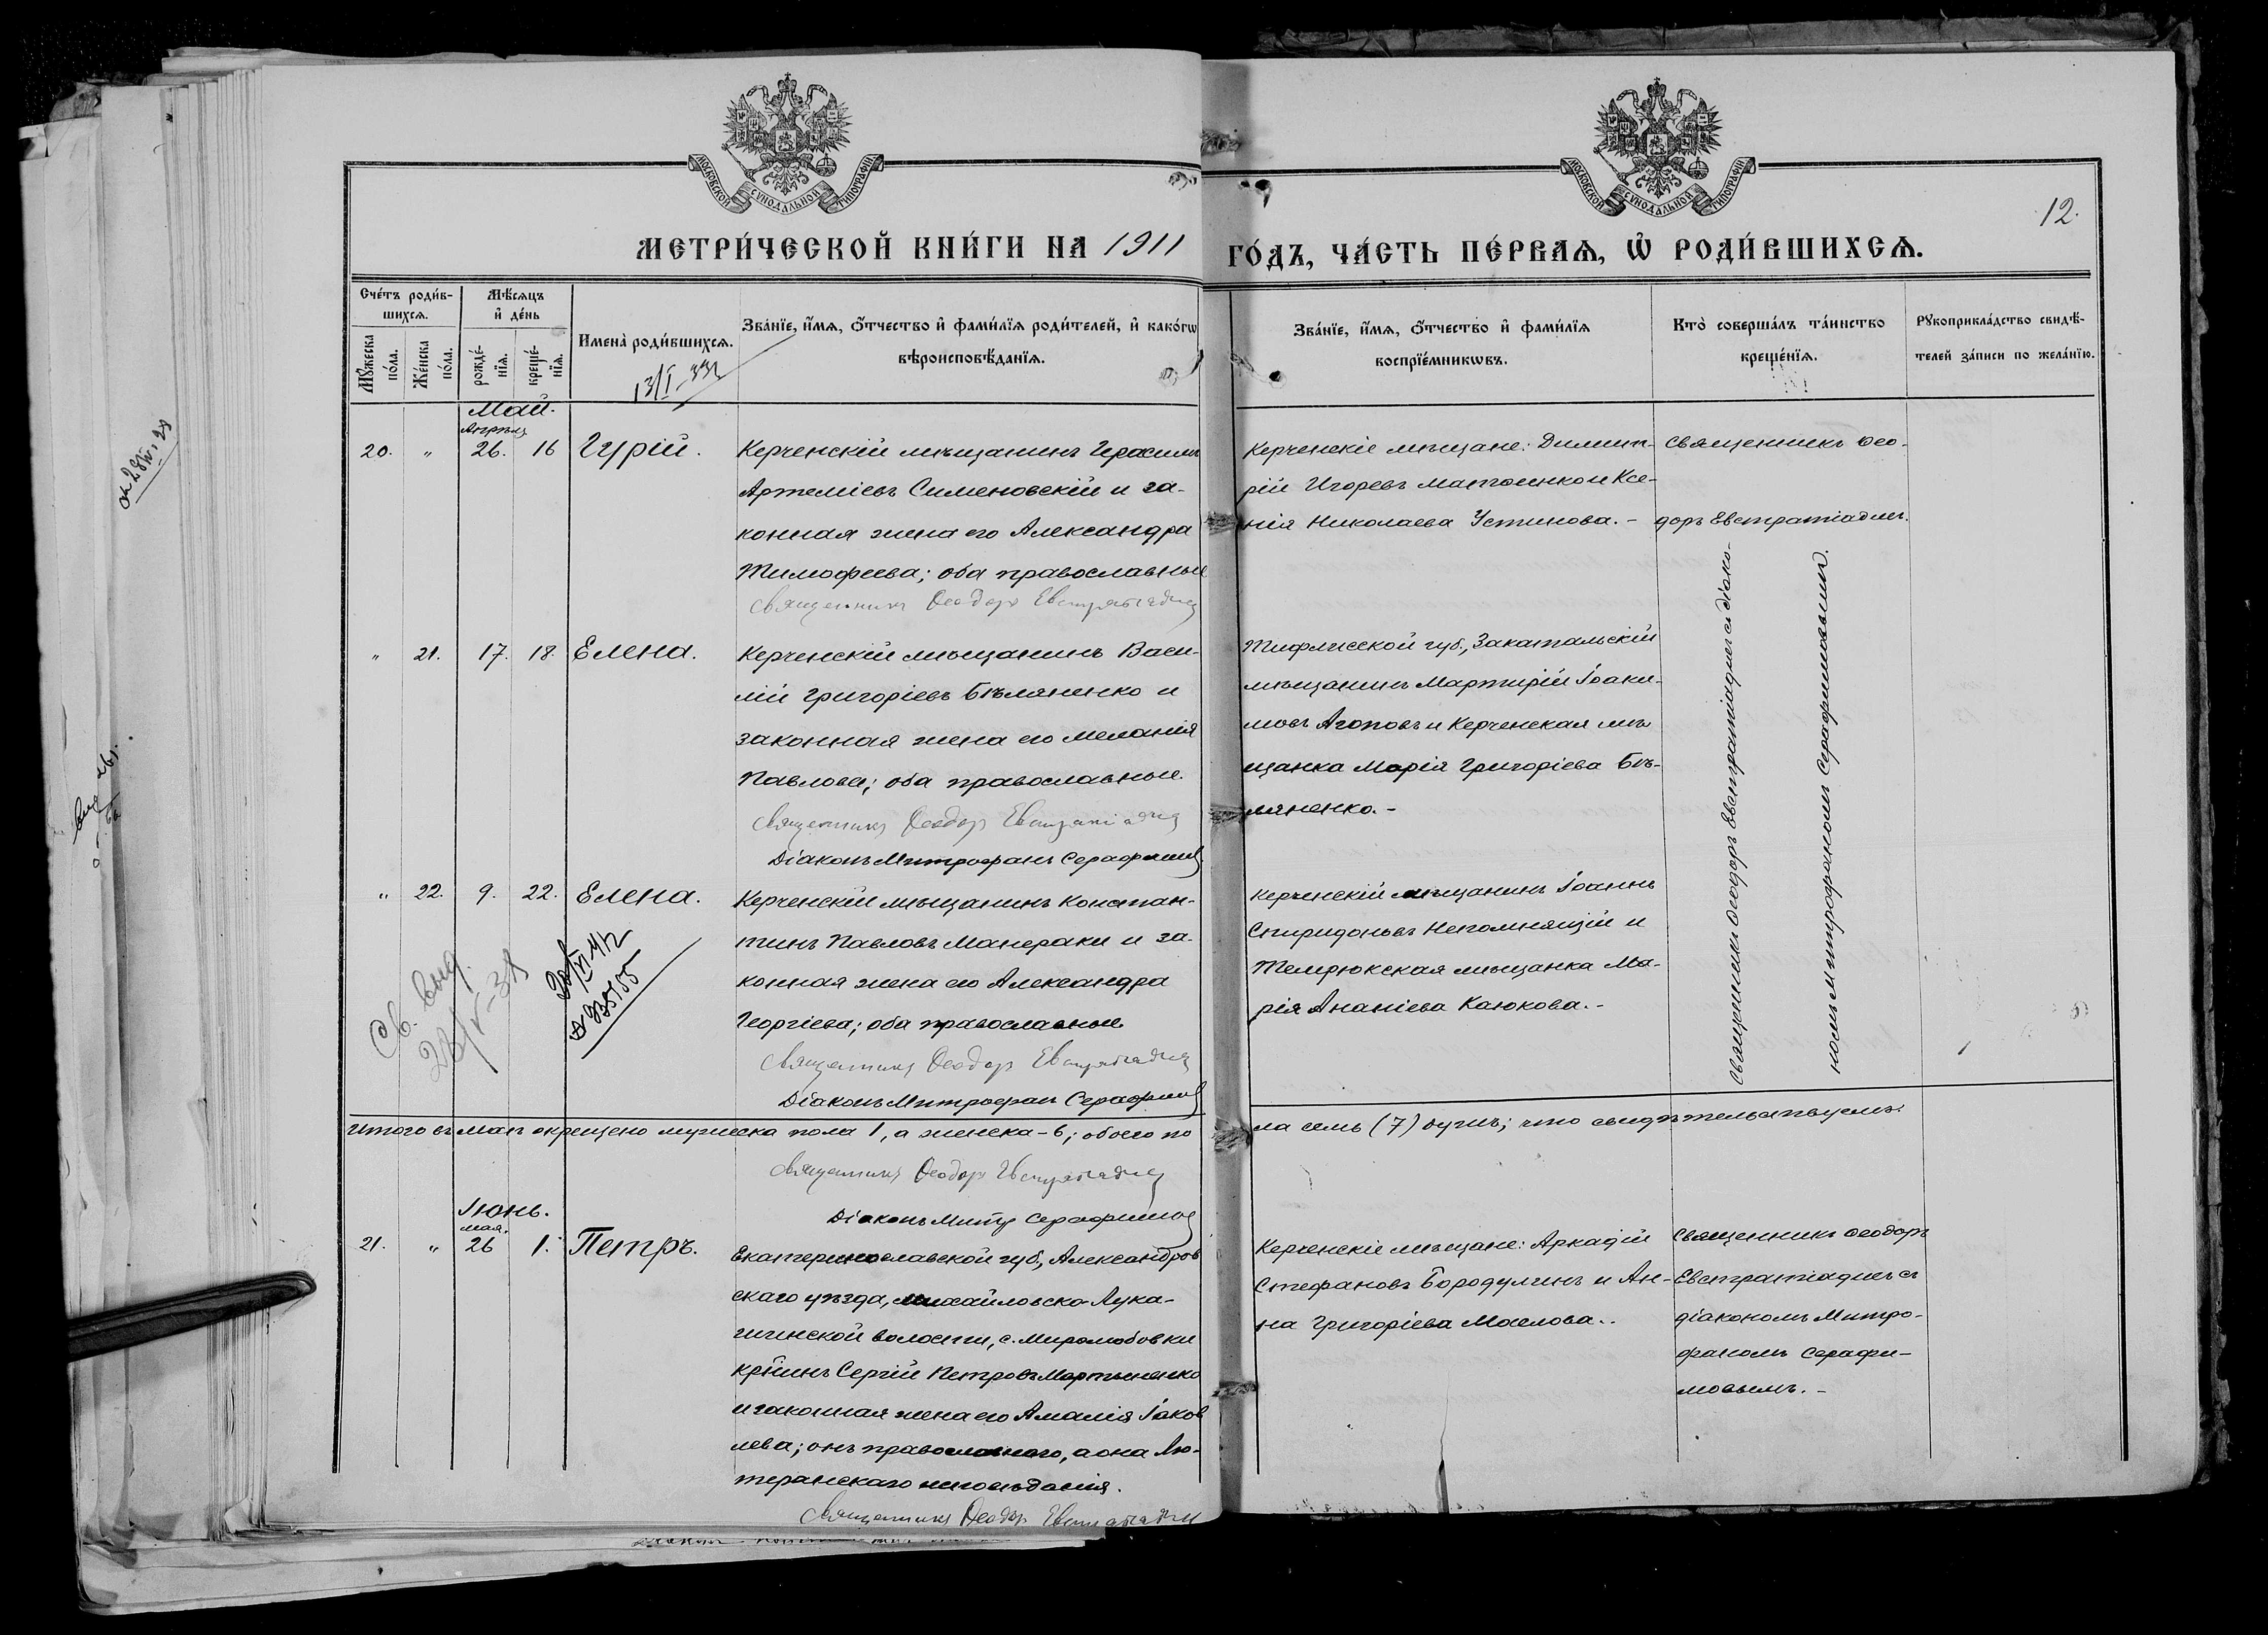 МОСКОВСКОЙ СѴНОДАЛЬНОЙ ТИПОГРАФІИ
МОСКОВСКОЙ СѴНОДАЛЬНОЙ ТИПОГРАФІИ
12.
МЕТРИ́ЧЕСКОЙ КНИ́ГИ НА 1911 ГО́ДЪ, ЧА́СТЬ ПЕ́РВАѦ, Ѡ҆ РОДИ́ВШИХСѦ.
Сче́тъ роди́в-
шихсѧ.
Мꙋ́жеска по́ла.
Же́нска по́ла.
Мѣ́сѧцъ
и҆ де́нь
рожде́-
нїѧ.
креще́-
нїѧ.
Имена̀ роди́вшихсѧ.
Зва́нїе, и҆́мѧ, ѻ҆́тчество и҆ фами́лїѧ роди́телей, и҆ како́гѡ
вѣроисповѣ́данїѧ.
Зва́нїе, и҆́мѧ, ѻ҆́тчество и҆ фами́лїѧ
воспрїе́мникѡвъ.
Кто̀ соверша́лъ та́инство
креще́нїѧ.
Рꙋкоприкла́дство свидѣ́-
телей за́писи по жела́нїю.
Май.
Апрѣля
20. " 26. 16 Гурій.
Керченскій мѣщанинъ Герасимъ
Артеміевъ Сименовскій и за-
конная жена его Александра
Тимофеева; оба православные
Священникъ Ѳеодоръ Евстратіадисъ
Керченскіе мѣщане: Димит-
рій Игоревъ и Ксе-
нія Николаева Устинова. -
Священникъ Ѳео-
доръ Евстратіадисъ.
" 21. 17. 18. Елена.
Керченскій мѣщанинъ Васи-
лій Григоріевъ Бѣляненко и
законная жена его Меланія
Павлова; оба православные.
Священникъ Ѳеодоръ Евстратіадисъ
Діаконъ Митрофанъ Серафимовъ
Тифлисской губ., Закатальскій
мѣщанинъ Мартирій Іоаки-
мовъ Агоповъ и Керченская мѣ
щанка Марія Григоріева Бѣ-
ляненко. -
Священникъ Ѳеодоръ Евстратіадисъ съ діако-
номъ Митрофаномъ Серафимовымъ.
" 22. 9. 22. Елена.
Керченскій мѣщанинъ Констан-
тинъ Павловъ Манераки и за-
конная жена его Александра
Георгіева; оба православные
Священникъ Ѳеодоръ Евстратіадисъ
Діаконъ Митрофанъ Серафимовъ
Керченскій мѣщанинъ Іоаннъ
Спиридоновъ Непомнящій и
Темрюкская мѣщанка Ма-
рія Ананіева Каюкова. -
Св. выд.
Итого въ маѣ окрещено мужеска пола 1, а женска - 6; обоего по
ла семь (7) душъ; что свидѣтельствуемъ:
Священникъ Ѳеодоръ Евстратіадисъ
Діаконъ Митр Серафимовъ
Іюнь.
мая.
21. " 26 1. Петръ.
Екатеринославской губ., Александров
скаго уѣзда, Михайловско-Лука-
шинской волости, с. Миролюбовки
кр̃тинъ Сергій Петровъ Мартыненко
и законная жена его Амалія Іаков
лева; онъ православнаго, а она Лю-
теранскаго исповѣданія.
Священникъ Ѳеодоръ Евстратіадисъ
Керченскіе мѣщане: Аркадій
Стефановъ Бородулинъ и Ан-
на Григоріева Маслова..
Священникъ Ѳеодоръ
Евстратіадисъ съ
діакономъ Митро-
фаномъ Серафи-
мовымъ. -